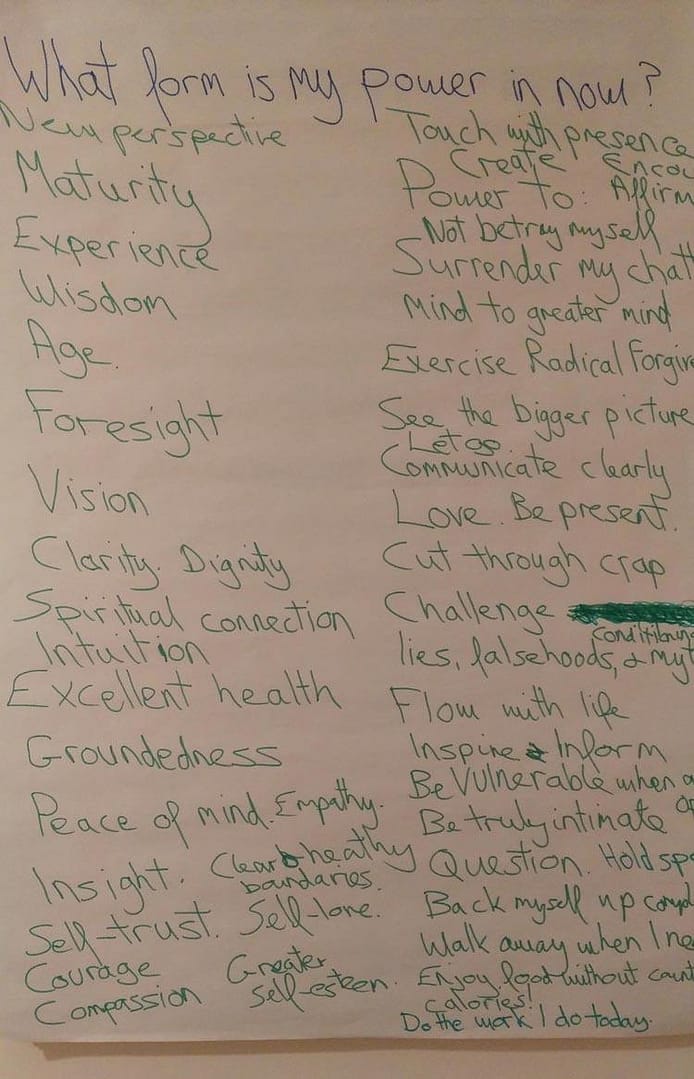 What form is my power in now?
New perspective
Maturity
Experience
Wisdom
Age.
Foresight
Vision
Clarity. Dignity
Spiritual connection
Intuition
Excellent health
Groundedness
Peace of mind. Empathy.
Insight. Clear & healthy
boundaries.
Self-trust. Self-love.
Courage Greater
Compassion Self-esteen.
Touch with presence
Create Encou
Power to: Affirm
Not betray myself
Surrender my chatt
Mind to greater mind
Exercise Radical Forgive
See the bigger picture
Let go.
Communicate clearly
Love. Be present.
Cut through crap
Challenge
conditioning
lies, falsehoods, & myt
Flow with life
Inspire & Inform
Be Vulnerable when a
Be truly intimate
Question. Hold spa
Back myself up compl
Walk away when I ne
Enjoy food without count
calories!
Do the work I do today.